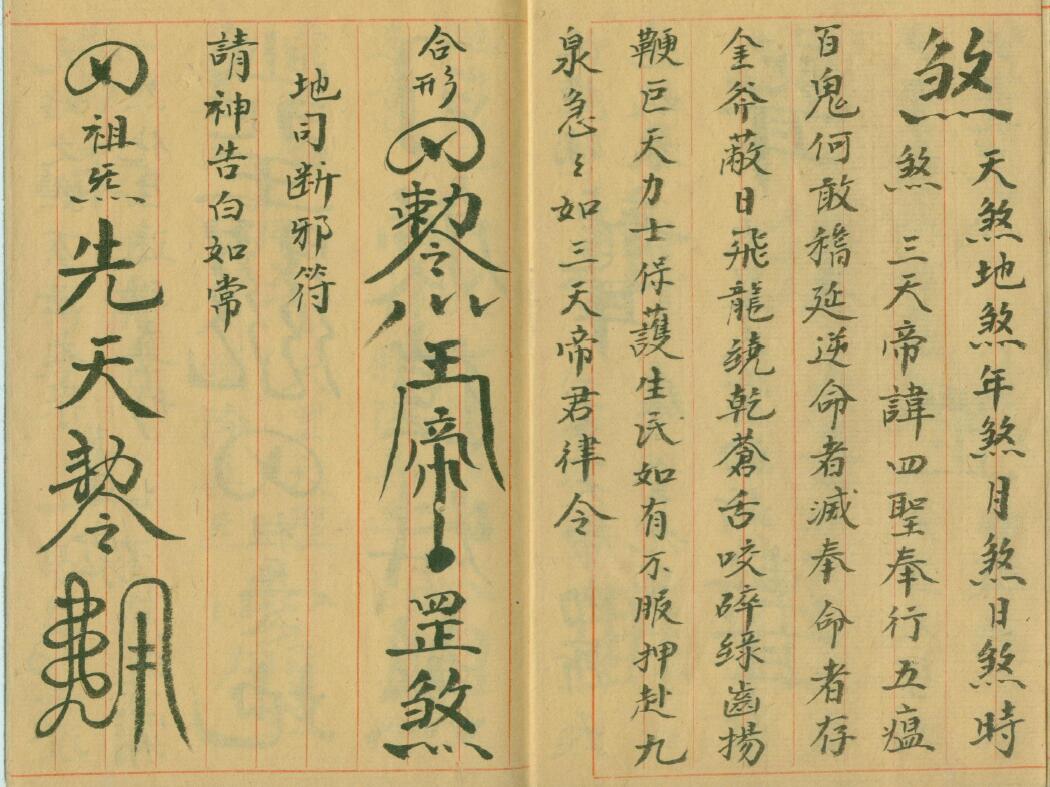 煞 天煞地煞年煞月煞日煞時
煞 三天帝諱四聖奉行五瘟
百鬼何敢稽延逆命者滅奉命者存
金斧蔽日飛龍繞乾蒼舌咬碎綠齒揚
鞭巨天力士保護生民如有不服押赴九
泉急々如三天帝君律令
合形
王帝罡煞
地司断邪符
請神告白如常
祖炁先天